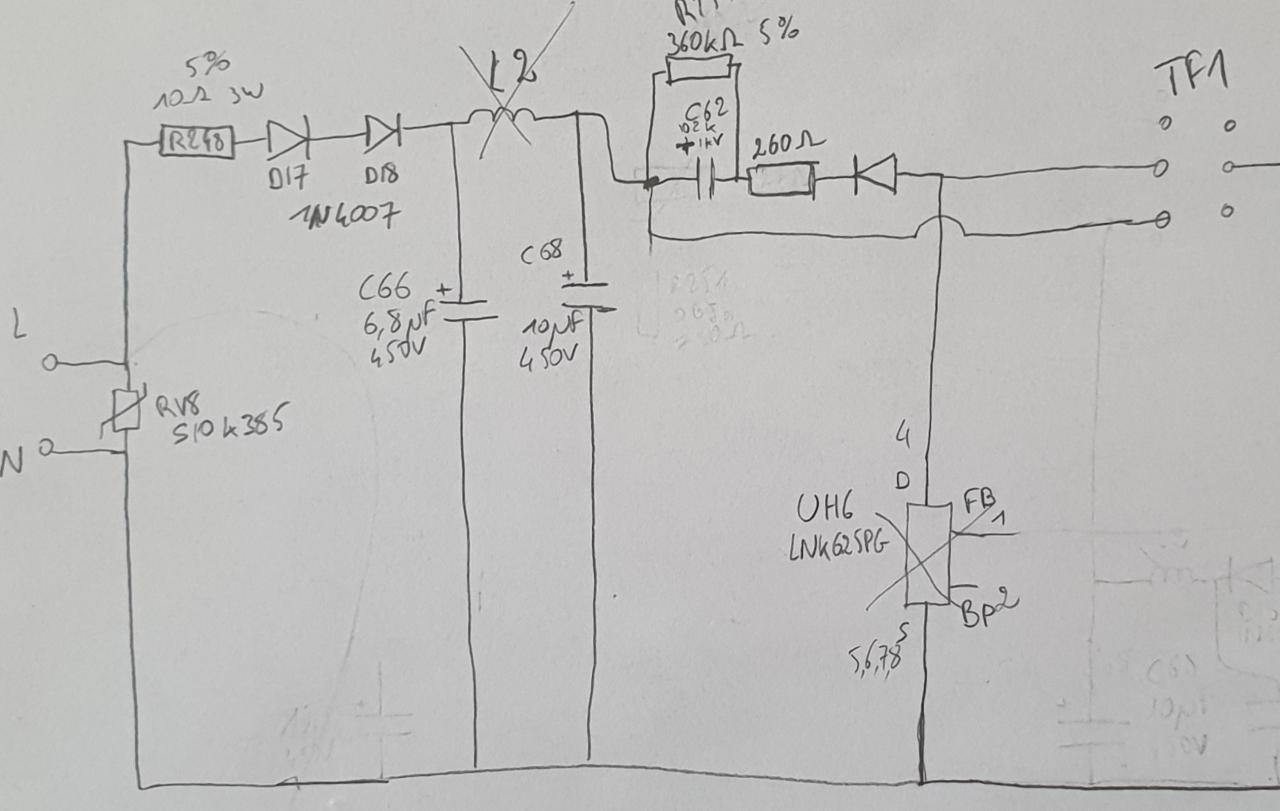 5%
10Ω 3W
R248
D17
D18
1N4007
L2
360kΩ 5%
C62
1kV
260Ω
TF1
C66
+
6,8µF
450V
C68
+
10µF
450V
L
N
RV8
S10K385
4
D
UH6
LNK625PG
FB
1
BP2
S
5,6,7,8